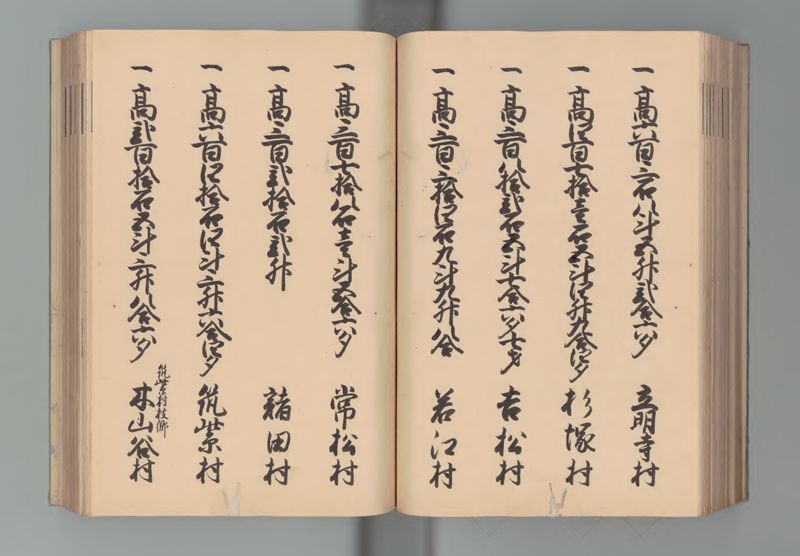 一高六百三石八斗五升弐合六勺 立明寺村
一高四百七拾壱石五斗四升九合四夕 杉塚村
一高三百八拾弐石五斗七合六夕七才 吉松村
一高三百三拾四石九斗九升八合 若江村
一高三百七拾八石壱斗五合六夕 常松村
一高三百弐拾石弐升 諸田村
一高六百四拾石四斗三升六合四夕 筑紫村
筑紫村枝郷
一高弐百拾石五斗三升八合六夕 木山谷村